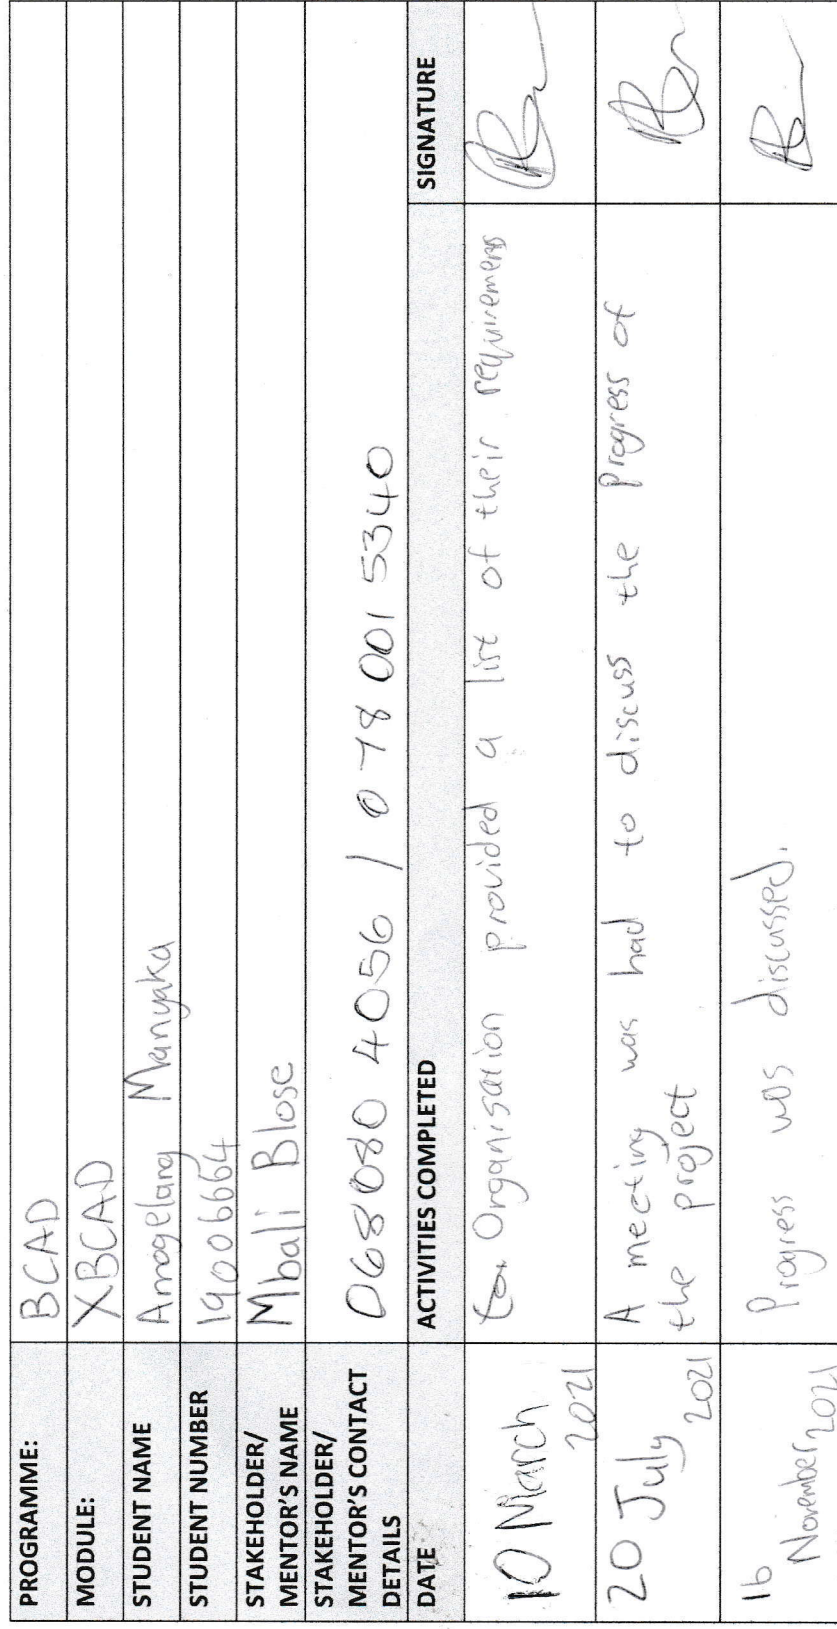 PROGRAMME: BCAD
MODULE: XBCAD
STUDENT NAME Amogelang Manyaka
STUDENT NUMBER 19006664
STAKEHOLDER/
MENTOR'S NAME Mbali Blose
STAKEHOLDER/
MENTOR'S CONTACT
DETAILS 068 080 4056 / 078 001 5340
DATE ACTIVITIES COMPLETED SIGNATURE
10 March
2021
Organisation provided a list of their requirements
20 July
2021
A meeting was had to discuss the Progress of
the project
16
November 2021
Progress was discussed.